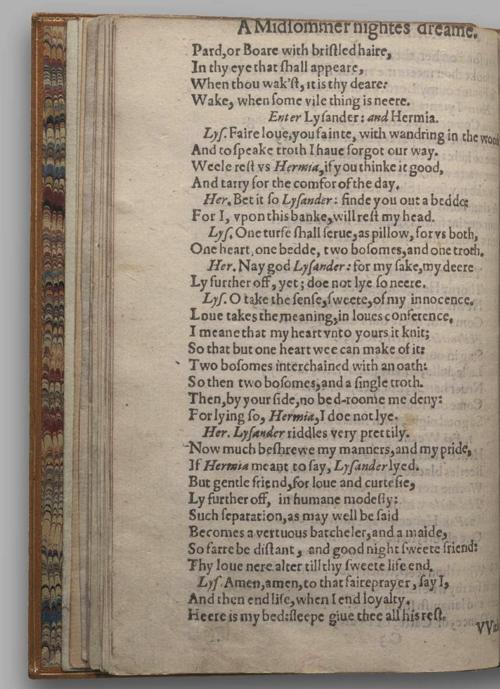 A Midsommer nightes dreame.
Pard, or Boare with bristled haire,
In thy eye that shall appeare,
When thou wak'st, it is thy deare:
Wake, when some vile thing is neere.
Enter Lysander: and Hermia.
Lys. Faire loue, you fainte, with wandring in the wood
And to speake troth I haue forgot our way.
Weele rest vs Hermia, if you thinke it good,
And tarry for the comfor of the day.
Her. Bet it so Lysander: finde you out a bedde:
For I, vpon this banke, will rest my head.
Lys. One turfe shall serue, as pillow, for vs both,
One heart, one bedde, two bosomes, and one troth.
Her. Nay god Lysander: for my sake, my deere
Ly further off, yet; doe not lye so neere.
Lys. O take the sense, sweete, of my innocence.
Loue takes the meaning, in loues conference.
I meane that my heart vnto yours it knit;
So that but one heart wee can make of it:
Two bosomes interchained with an oath:
So then two bosomes, and a single troth.
Then, by your side, no bed-roome me deny:
For lying so, Hermia, I doe not lye.
Her. Lysander riddles very prettily.
Now much beshrewe my manners, and my pride,
If Hermia meant to say, Lysander lyed.
But gentle friend, for loue and curtesie,
Ly further off, in humane modesty:
Such separation, as may well be said
Becomes a vertuous batcheler, and a maide,
So farre be distant, and good night sweete friend:
Thy loue nere alter till thy sweete life end.
Lys. Amen, amen, to that faire prayer, say I,
And then end life, when I end loyalty.
Heere is my bed: sleepe giue thee all his rest.